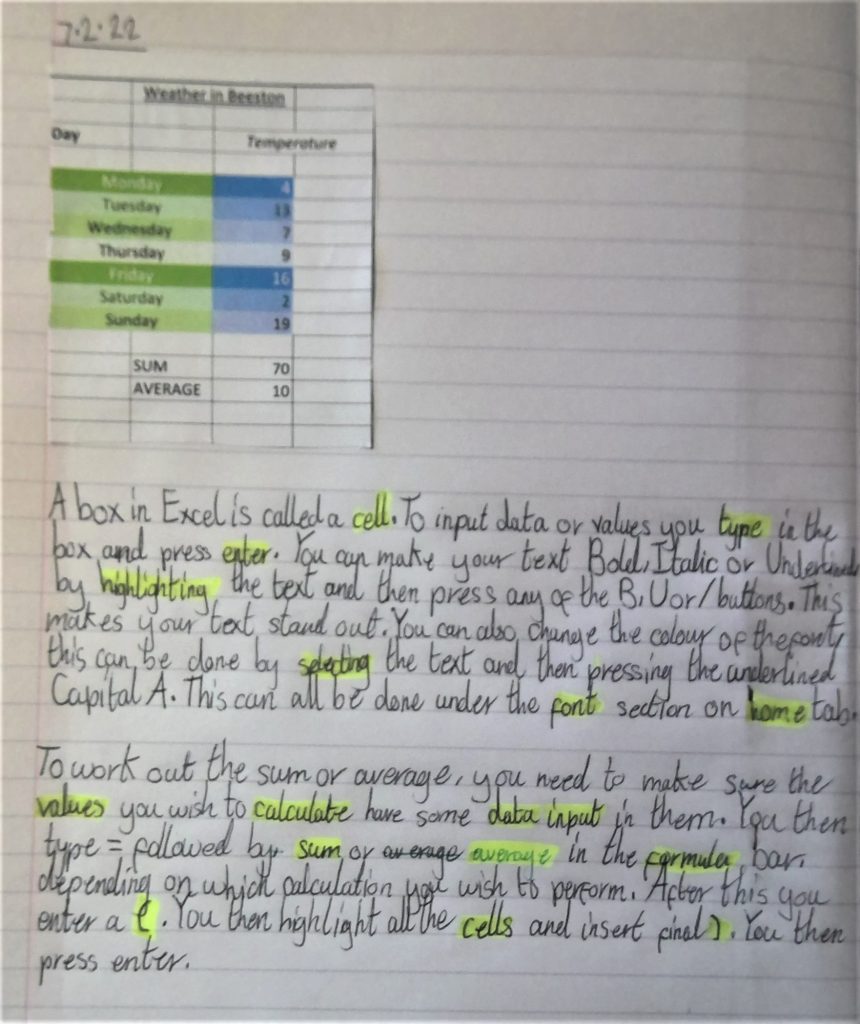 7.2.22
Weather in Beeston
Day Temperature
Monday 4
Tuesday 13
Wednesday 7
Thursday 9
Friday 16
Saturday 2
Sunday 19
SUM 70
AVERAGE 10
A box in Excel is called a cell. To input data or values you type in the
box and press enter. You can make your text Bold, Italic or Underlined
by highlighting the text and then press any of the B, U or / buttons. This
makes your text stand out. You can also change the colour of the font,
this can be done by selecting the text and then pressing the underlined
Capital A. This can all be done under the font section on home tab.
To work out the sum or average, you need to make sure the
values you wish to calculate have some data input in them. You then
type = followed by sum or average average in the formula bar,
depending on which calculation you wish to perform. After this you
enter a (. You then highlight all the cells and insert final ). You then
press enter.